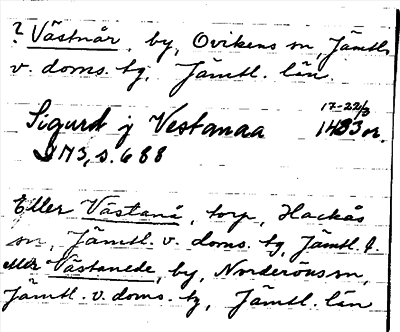 ? Västnår, by, Ovikens sn, Jämtl.
v. doms. tg, Jämtl. län.
17-22/3
Sigurd j Vestanaa 1483 or.
J 173, s. 688
Eller Västanå, torp, Hackås
sn, Jämtl. v. doms. tg, Jämtl. l.
eller Västanede, by, Norderöns sn,
Jämtl. v. doms. tg, Jämtl. län